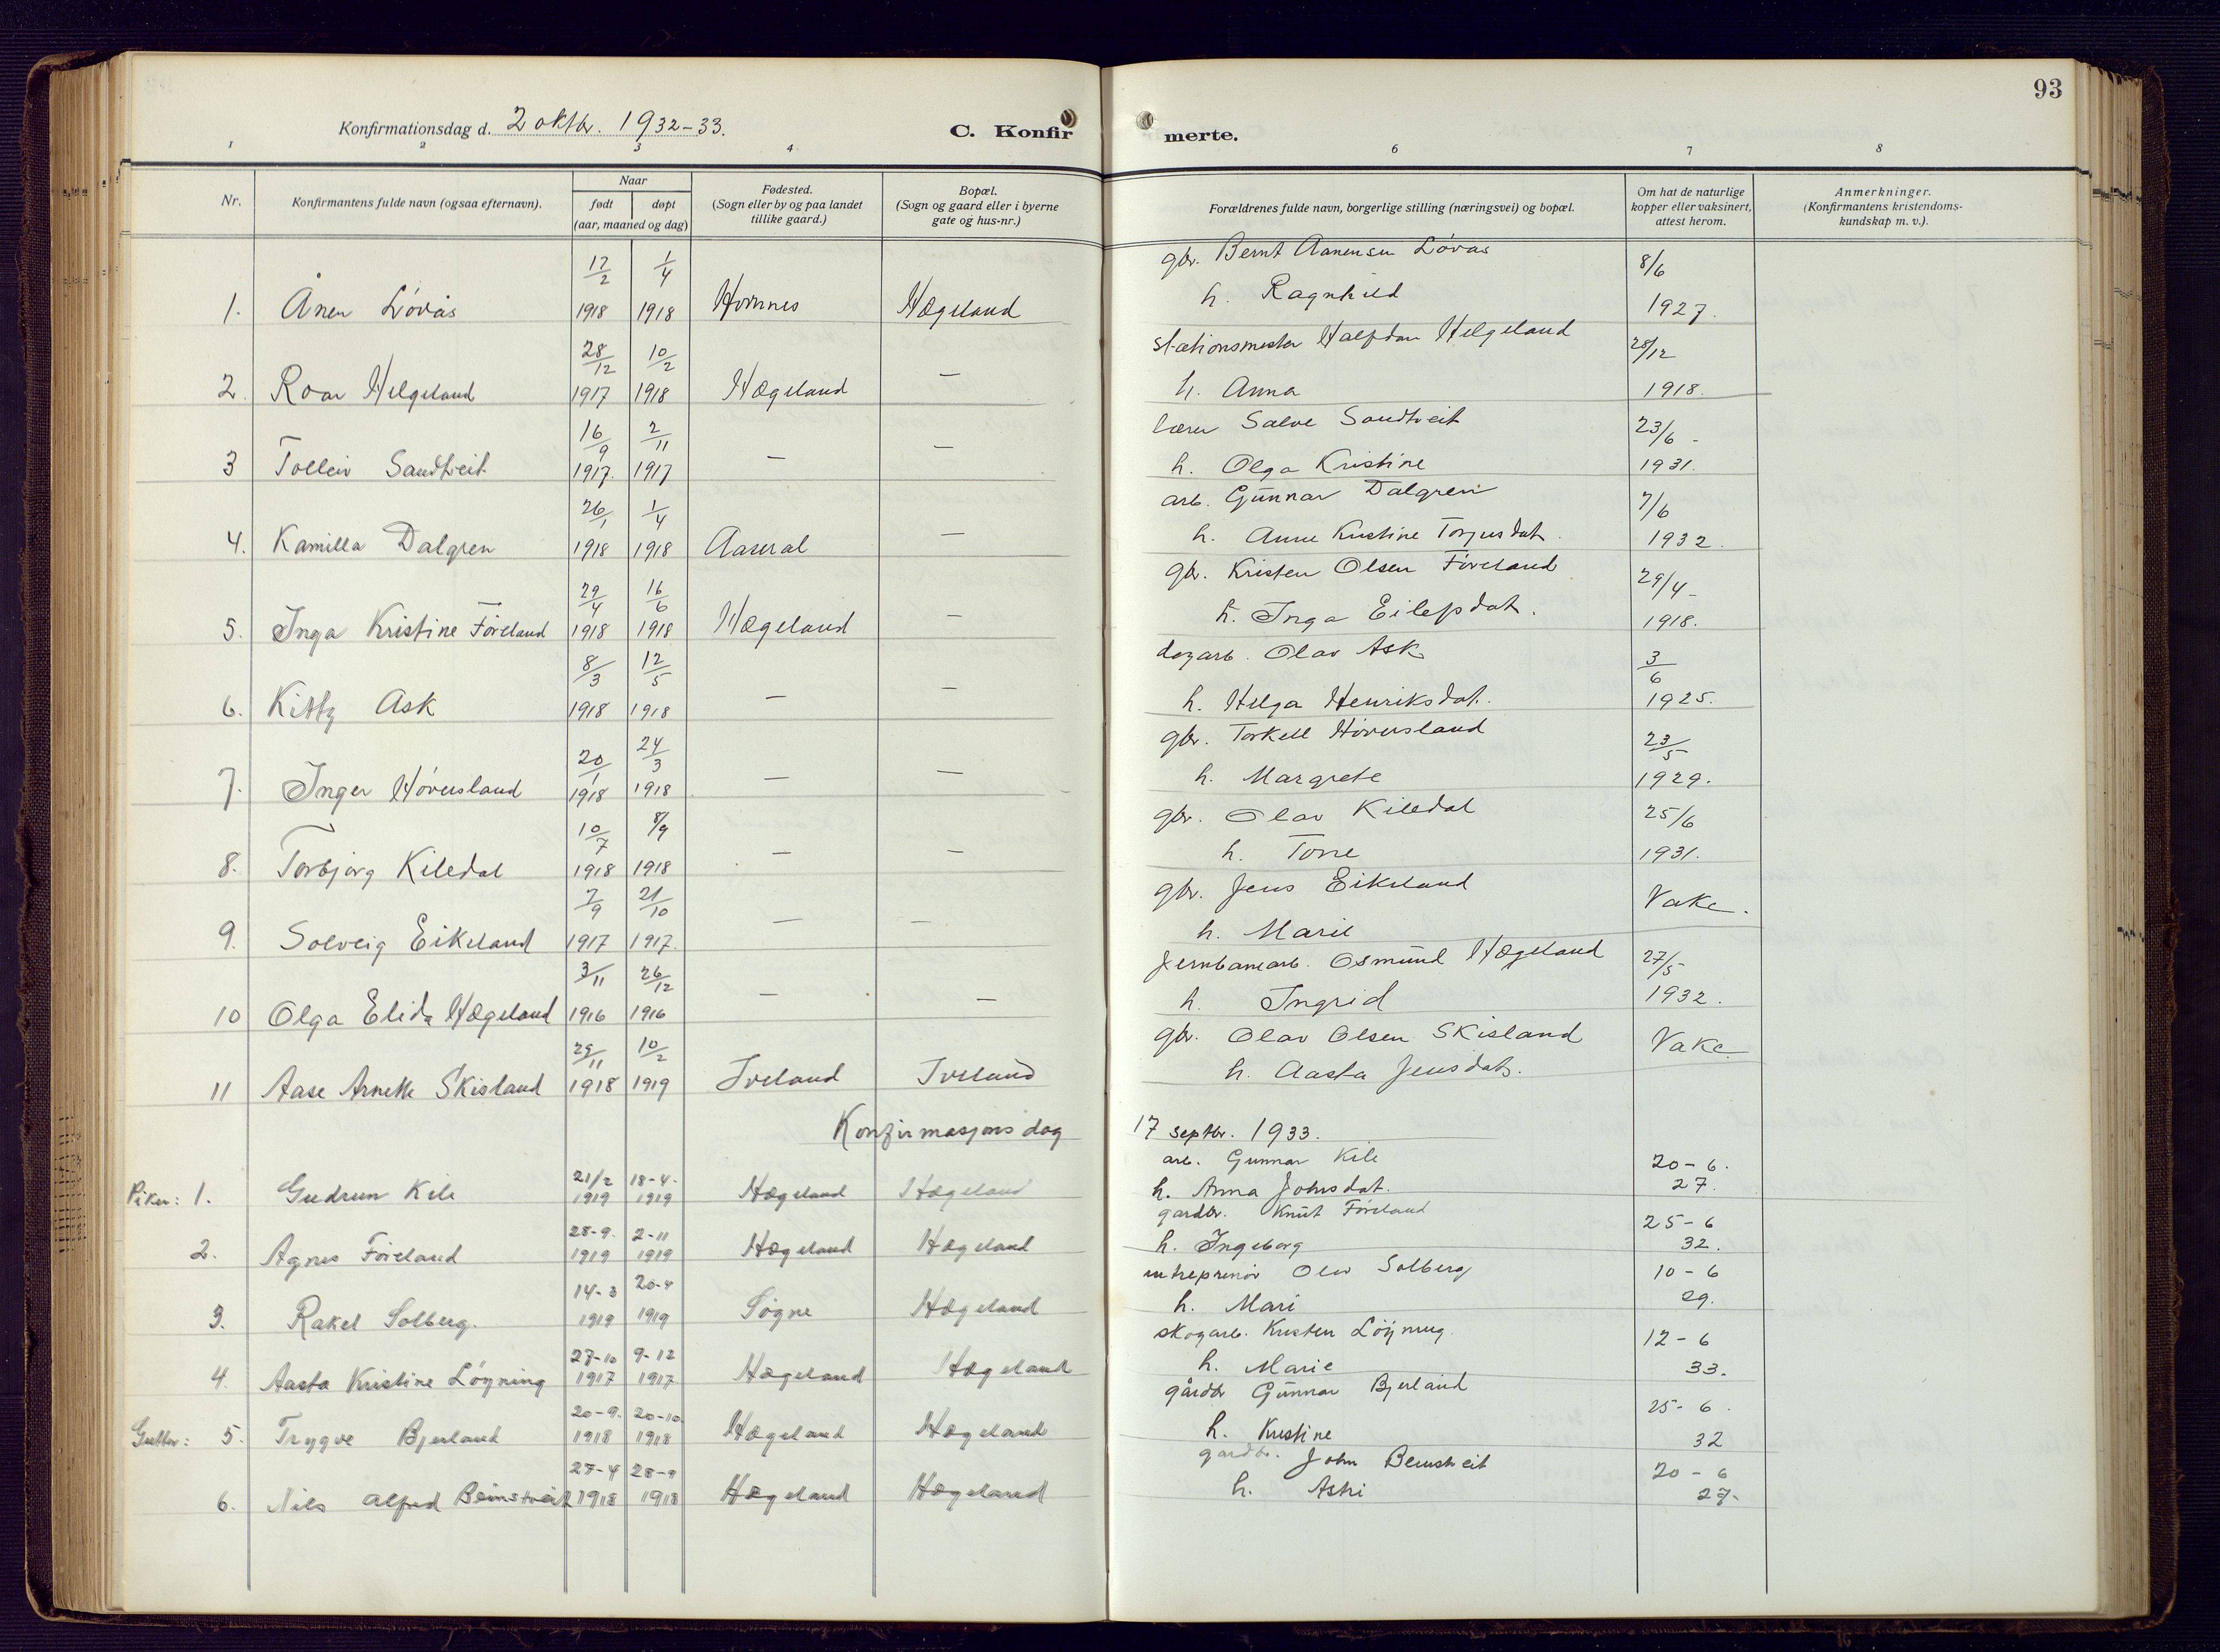 93
Konfirmationsdag d. 2 oktbr. 1932-33. C. Konfir merte.
1 2 3 4 6 7 8
Nr. Konfirmantens fulde navn (ogsaa efternavn). Naar født døpt (aar, maaned og dag) Fødested. (Sogn eller by og paa landet tillike gaard.) Bopæl. (Sogn og gaard eller i byerne gate og hus-nr.) Forældrenes fulde navn, borgerlige stilling (næringsvei) og bopæl. Om hat de naturlige kopper eller vaksinert, attest herom. Anmerkninger. (Konfirmantens kristendoms- kundskap m. v.).
17/2 1/4 gbr. Bernt Aanensen Lövås 8/6
1. Ånen Lövås 1918 1918 Hornnes Hægeland h. Ragnhild 1927.
28/12 10/2 stationsmester Halfdan Helgeland 28/12
2. Roar Helgeland 1917 1918 Hægeland — h. Anna 1918.
16/9 2/11 lærer Salve Sandtveit 23/6 -
3 Tolleiv Sandtveit 1917. 1917 — — h. Olga Kristine 1931.
26/1 1/4 arb. Gunnar Dalgren 7/6
4. Kamilla Dalgren 1918 1918 Aaseral — h. Anne Kristine Torjusdat. 1932.
29/4 16/6 gbr. Kristen Olsen Föreland 29/4 -
5. Inga Kristine Föreland 1918 1918 Hægeland — h. Inga Eilefsdat. 1918.
8/3 12/5 dagarb. Olav Ask 3/6
6. Kitty Ask 1918 1918 — — h. Helga Henriksdat. 1925.
20/1 24/3 gbr. Torkell Höversland 23/5
7. Inger Höversland 1918 1918 — — h. Margrete 1929.
10/7 8/9 gbr. Olav Kiledal 25/6
8. Torbjørg Kiledal 1918 1918 — — h. Tone 1931.
7/9 21/10 gbr. Jens Eikeland Vakc.
9. Solveig Eikeland 1917 1917. — — h. Marie
3/11 26/12 Jernbanearb. Osmund Hægeland 27/5
10 Olga Elida Hægeland 1916 1916 — — h. Ingrid 1932.
29/11 10/2 gbr. Olav Olsen Skisland Vakc.
11 Aase Arnette Skisland 1918 1919 Iveland Iveland h. Aasta Jensdat.
Konfirmasjonsdag 17 septbr. 1933.
21/2 18-4. arb. Gunnar Kile 20-6.
Piker: 1. Gudrun Kile 1919 1919 Hægeland Hægeland h. Anna Johnsdat. 27.
28-9. 2-11 gardbr. Knut Föreland 25-6
2. Agnes Föreland 1919 1919 Hægeland Hægeland h. Ingeborg 32.
14-3 20-4 entreprenör Olav Solberg 10-6
3. Rakel Solberg. 1919 1919 Søgne Hægeland h. Mari 29.
27-10 9-12 skogarb. Kristen Löyning. 12-6
4. Aasta Kristine Löyning 1917 1917 Hægeland Hægeland h. Marie 33.
20-9. 20-10. gårdbr Gunnar Bjerland 25-6.
Gutter: 5. Trygve Bjerland 1918 1918 Hægeland Hægeland h. Kristine 32
28-9 gardbr. John Beinstveit 20-6
6. Nils Alfred Beinstveit 1918 1918 Hægeland Hægeland h. Astri 27.